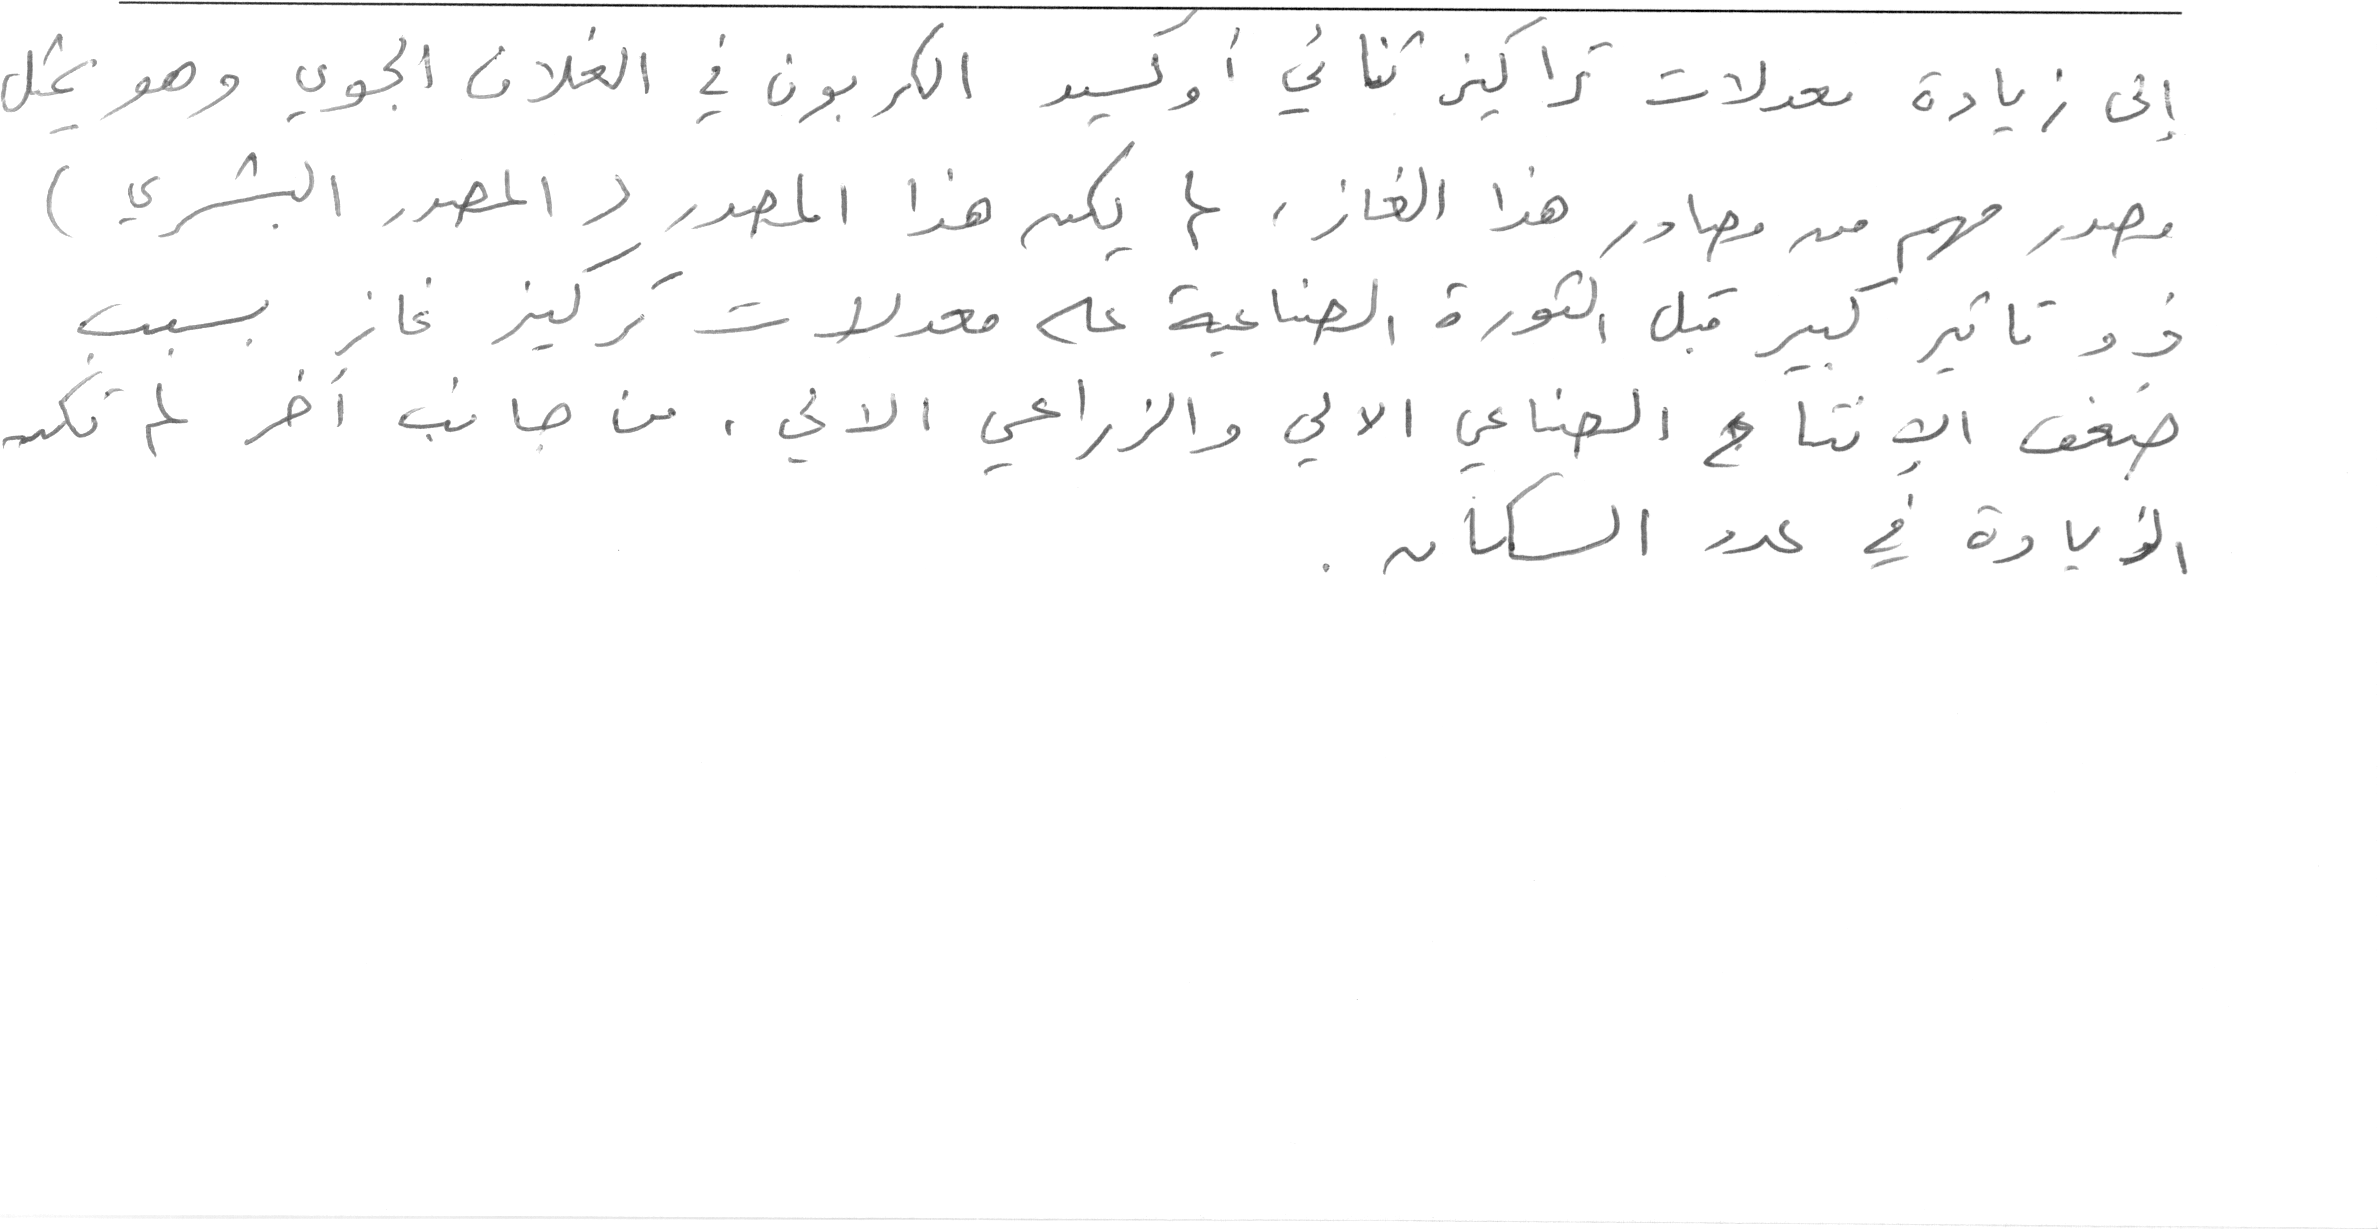 إلى زيادة معدلات تراكيز ثنائي أوكسيد الكربون في الغلاف الجوي وهو يمثل
مصدر مهم من مصادر هذا الغاز، لم يكن هذا المصدر (المصدر البشري)
ذو تاثير كبير قبل الثورة الصناعية على معدلات تركيز غاز بسبب
ضعف الإنتاج الصناعي الالي والزراعي الاني، من جانب أخر لم تكن
الزيادة في عدد السكان.